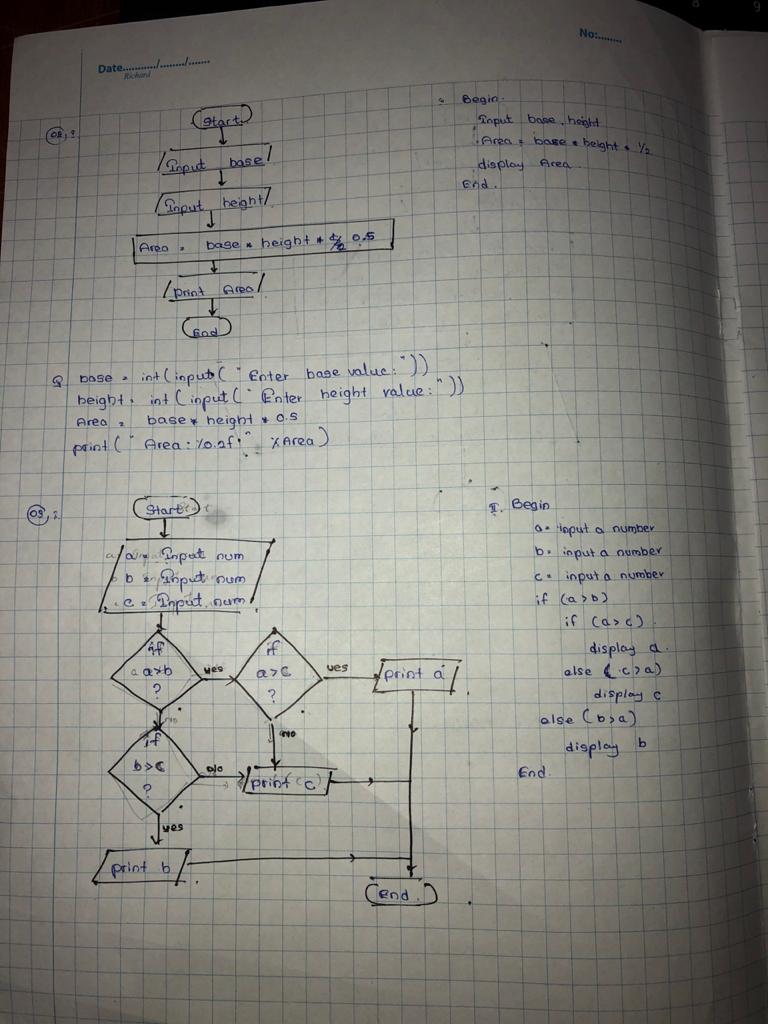 8 9
No:........
Date.........../......../.......
Richard
Start
Input base
Input height
Area = base * height * 1/2 0.5
print Area
End
Begin
Input base, height
Area = base * height * 1/2
display Area
End.
base = int(input("Enter base value:"))
height = int(input("Enter height value:"))
Area = base * height * 0.5
print("Area: %0.2f" %Area)
Start
a = Input num
b = Input num
c = Input num
if
a>b
?
yes
if
a>c
?
yes
print a
no
no
if
b>c
?
no
print c
yes
print b
End.
I. Begin
a = input a number
b = input a number
c = input a number
if (a>b)
if (a>c)
display a
else (c>a)
display c
else (b>a)
display b
End.